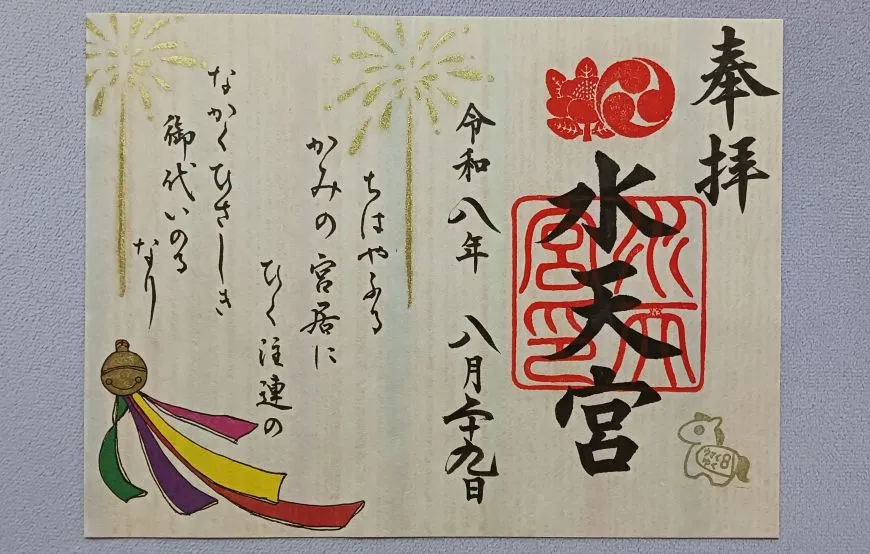 奉拝
水天宮
水天宮印
令和八年 八月二十九日
ちはやふる
かみの宮居に
ひく注連の
なかくひさしき
御代いのる
なり